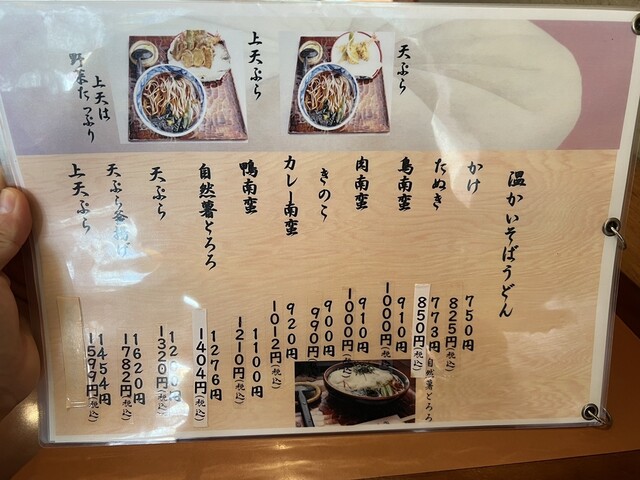 天ぷら
上天ぷら
上天は
野菜たっぷり
温かいそばうどん
かけ 750円
825円(税込)
たぬき 773円
850円(税込)
鳥南蛮 910円
1000円(税込)
肉南蛮 910円
1000円(税込)
きのこ 900円
990円(税込)
カレー南蛮 920円
1012円(税込)
鴨南蛮 1100円
1210円(税込)
自然薯とろろ 1276円
1404円(税込)
天ぷら
1320円(税込)
天ぷら釜揚げ 1620円
1782円(税込)
上天ぷら 1454円
1599円(税込)
自然薯とろろ